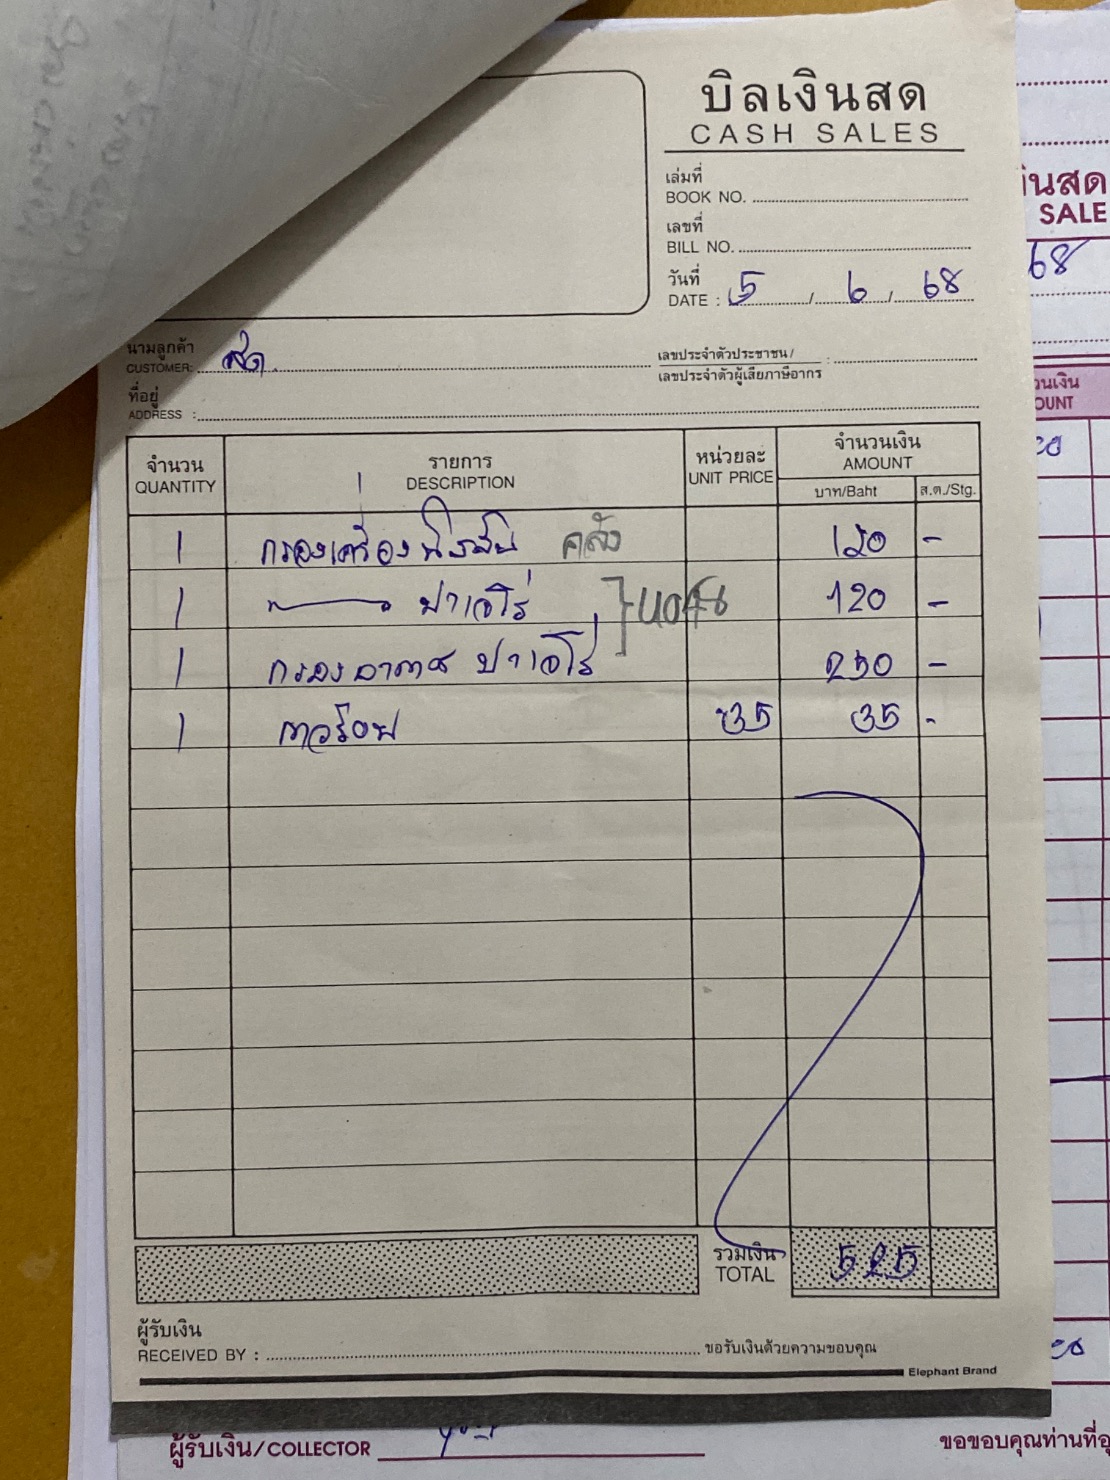 บิลเงินสด
CASH SALES
เล่มที่
BOOK NO.
เลขที่
BILL NO.
วันที่
DATE : 5 / 6 / 68
นามลูกค้า
CUSTOMER: สด
เลขประจำตัวประชาชน /
เลขประจำตัวผู้เสียภาษีอากร :
ที่อยู่
ADDRESS :
จำนวน รายการ หน่วยละ จำนวนเงิน
QUANTITY DESCRIPTION UNIT PRICE AMOUNT
บาท/Baht ส.ต./Stg.
1 กรองเครื่อง 120 -
1 ปาเจโร่ 120 -
1 กรองอากาศ ปาเจโร่ 250 -
1 กาวร้อน 35 35 -
รวมเงิน
TOTAL 525
ผู้รับเงิน
RECEIVED BY : ขอรับเงินด้วยความขอบคุณ
Elephant Brand
ผู้รับเงิน/COLLECTOR
ินสด
SALE
68
วนเงิน
OUNT
ขอขอบคุณท่านที่อุ